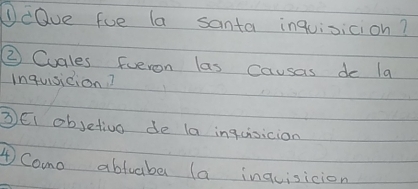 ① ¿Que fue la santa inquisicion?
② Cuales fueron las causas de la
Inquisicion?
③ El objetivo de la inquisicion
④ Como abtuaba la inquisicion